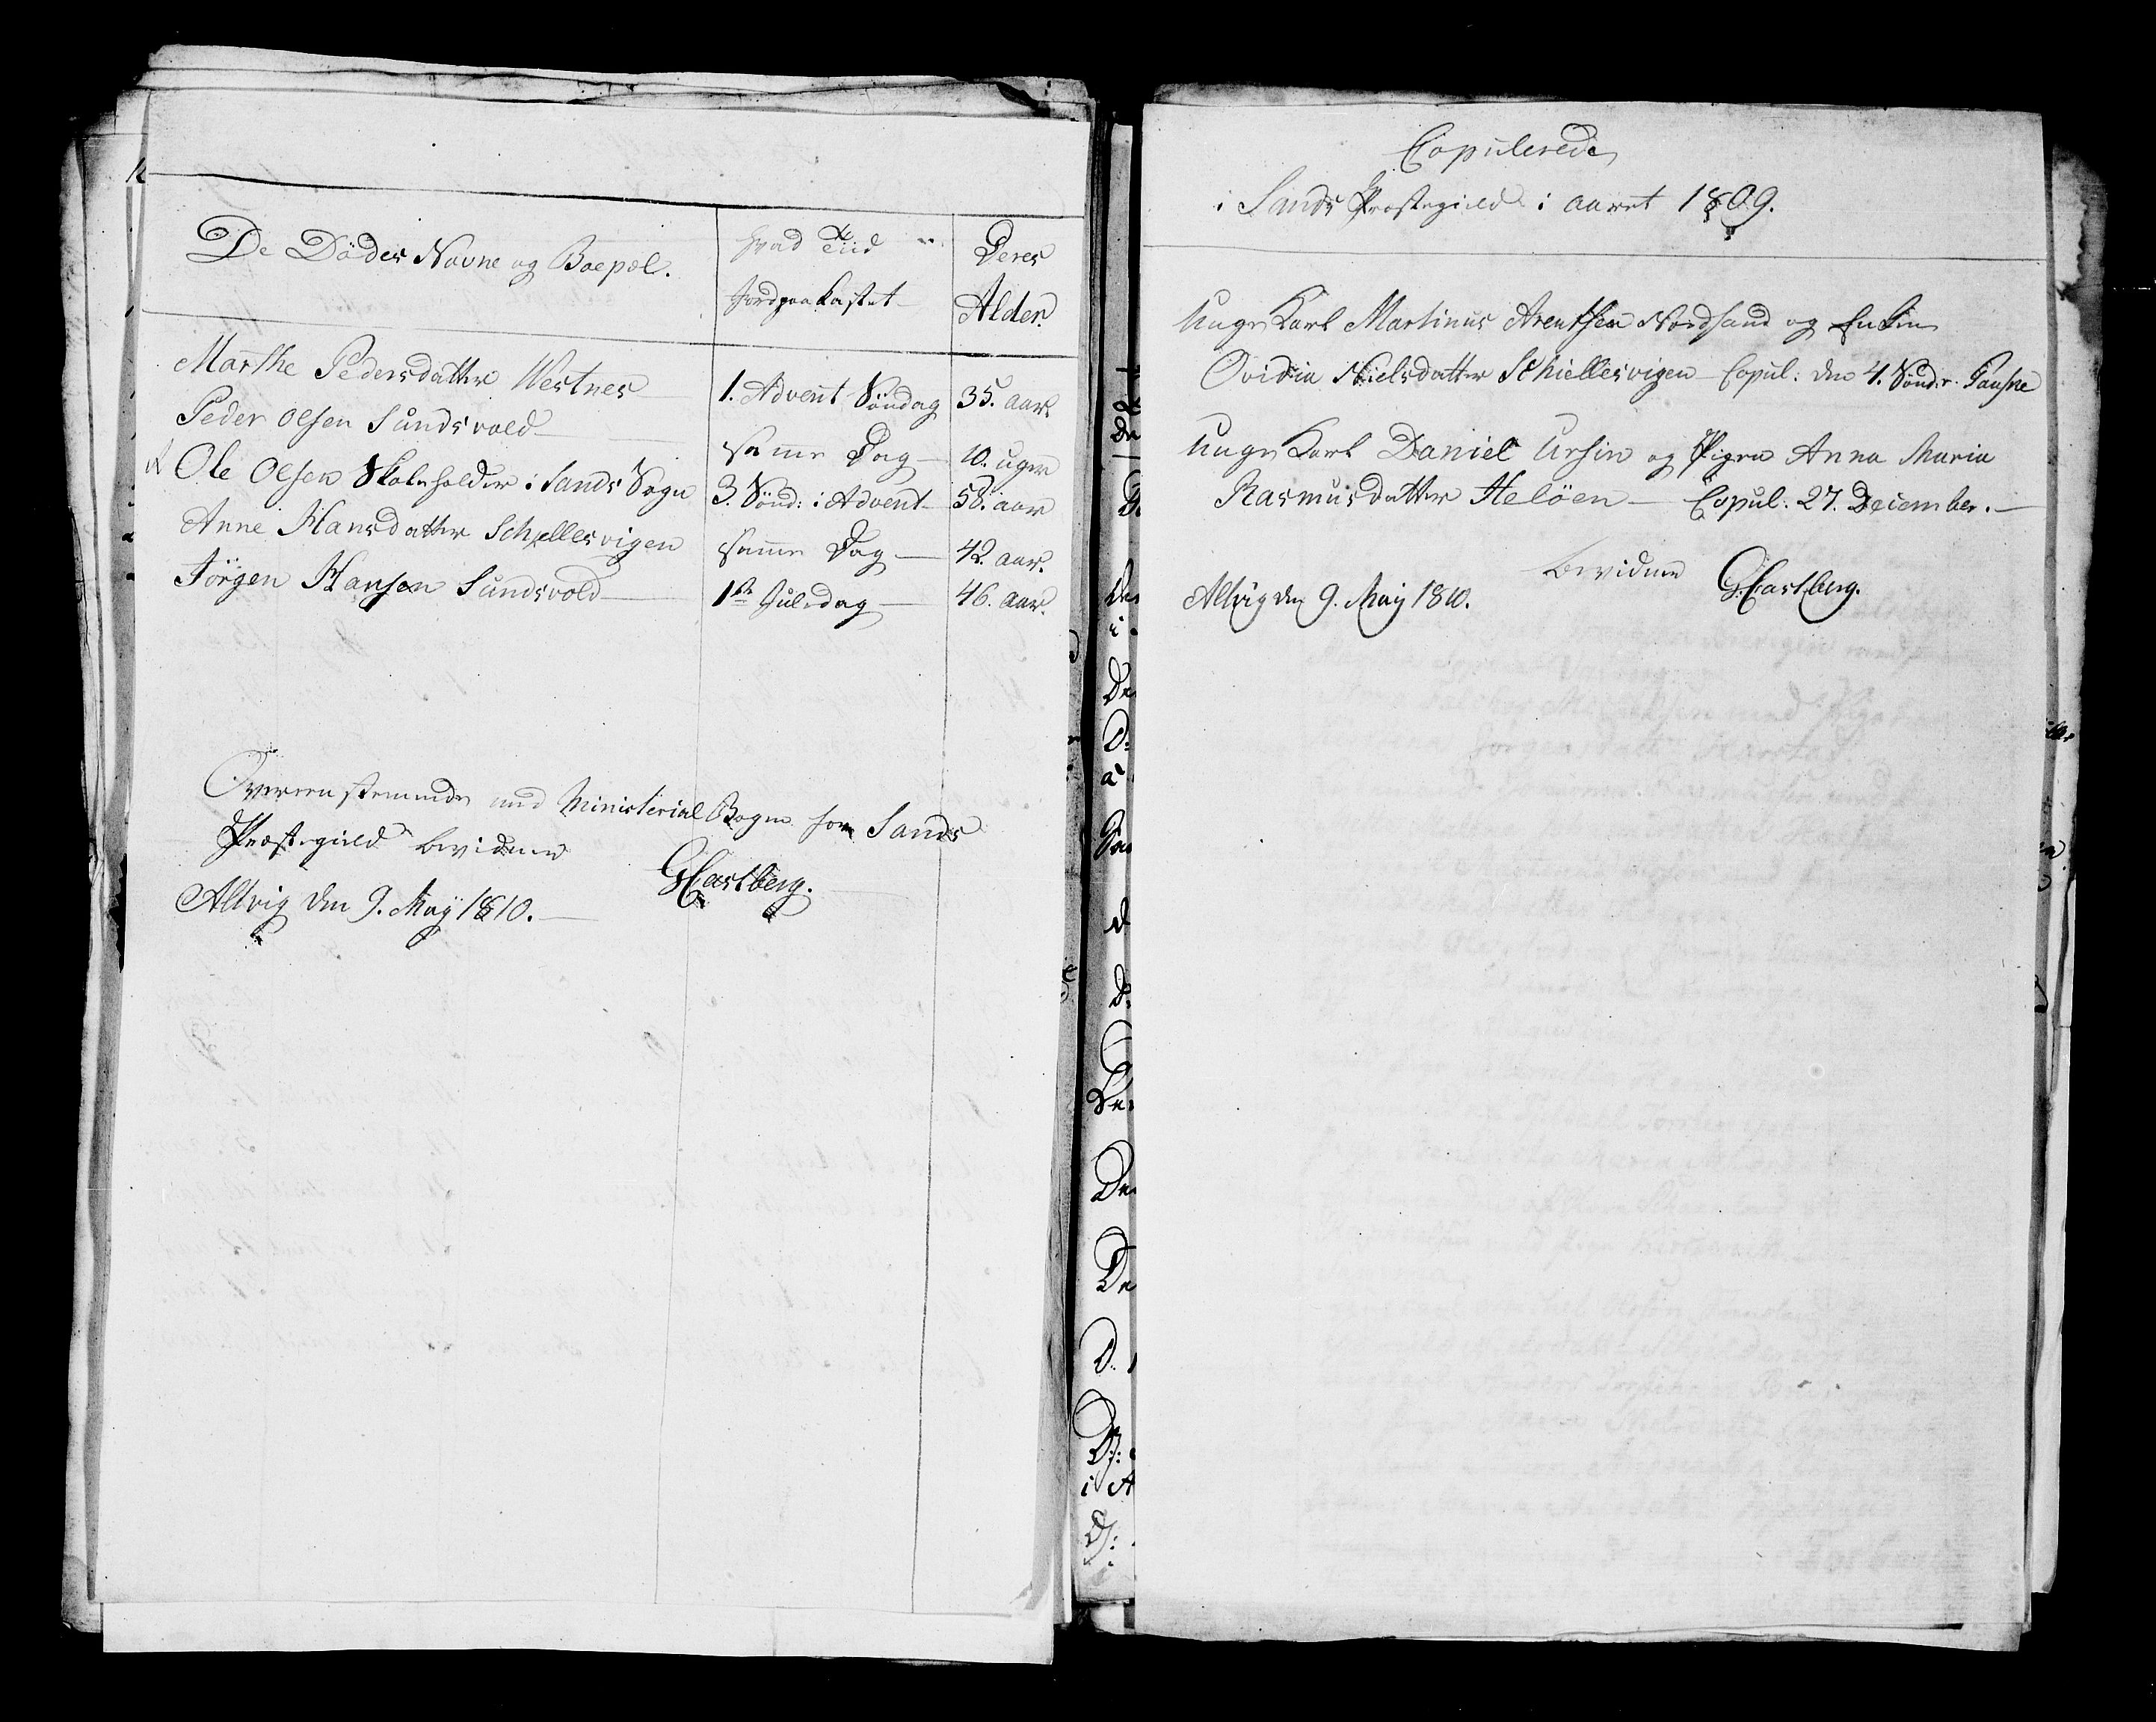 De Dödes Navne og Boepæl.
Hvad Tiid
Jordpaakastet
Deres
Alder.
Marthe Pedersdatter Westnes 1. Advent Söndag 35. aar.
Peder Olsen Sundsvold samme Dag 10. uger
Ole Olsen Skoleholder i Sands Sogn 3. Sönd: i Advent 58. aar
Anne Hansdatter Schiellesvigen samme Dag 42. aar.
Jörgen Hansen Sundsvold 1ste Juledag 46. aar.
Overeenstemmende med Ministerial Bogen for Sands
Præstegield bevidner
GCastberg.
Altvig den 9. May 1810.
Copulerede
i Sands Præstegield i aaret 1809.
Unge Karl Martinus Arentsen Nordsand og Enken
Ovidia Nielsdatter Schiellesvigen Copul: den 4. Sönd: r. Paaske
Unge Karl Daniel Ursin og Pigen Anna Maria
Rasmusdatter Helöen Copul: 27. December.
bevidner GCastberg.
Altvig den 9. May 1810.